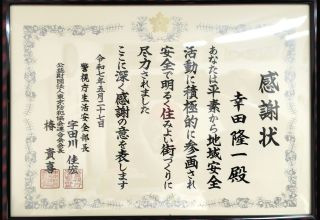 感謝状
幸田隆一殿
あなたは平素から地域安全
活動に積極的に参画され
安全で明るく住みよい街づくりに
尽力されました
ここに深く感謝の意を表します
令和七年五月二十七日
警視庁生活安全部長
宇田川佳宏
公益財団法人東京防犯協会連合会会長
椿貴喜